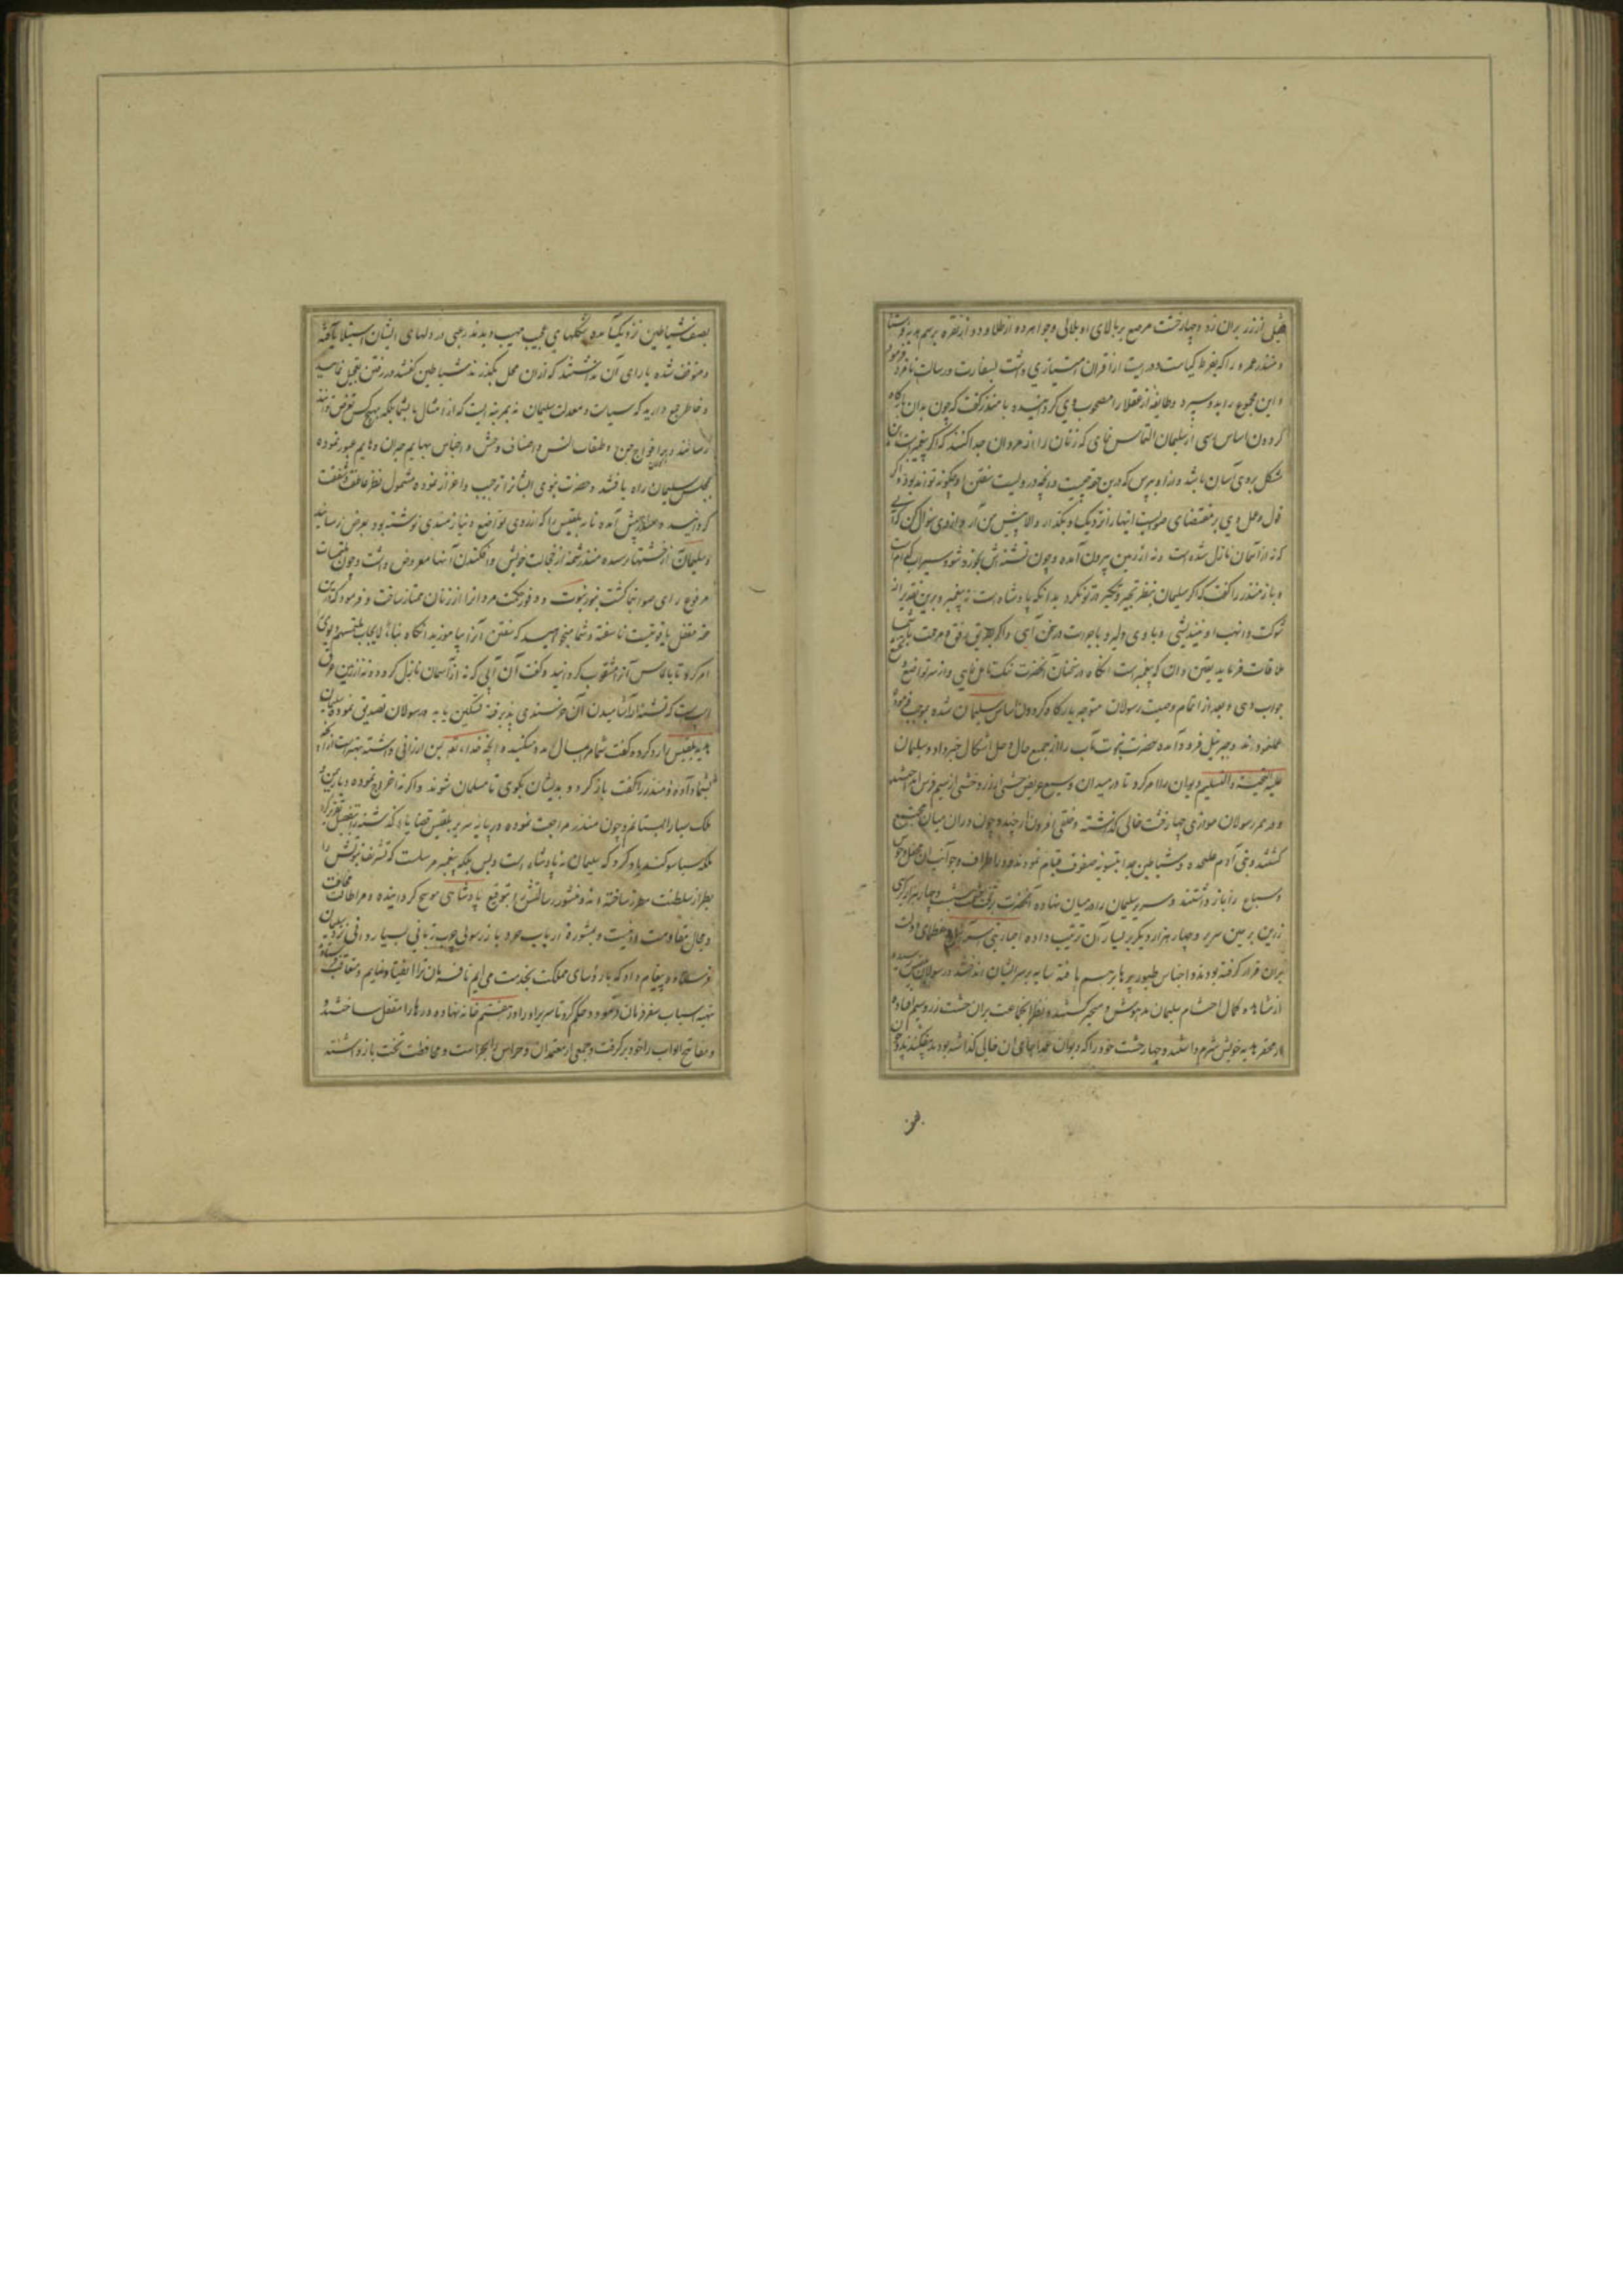 قفلی از زر بران زده و چهار خشت مرصع بر بالای او بلالی و جواهر دو از طلا و دو از نقره برسم هدیه بفرستاد
و منذر عمرو را که بفرط کیاست و درایت از اقران امتیازی داشت بسفارت و رسالت نامزد فرمود
و این مجموع را بدو سپرد و طایفه از عقلا را مصحوب وی گردانیده با منذر گفت که چون بدان بارگاه
گردون اساس رسی از سلیمان التماس نمای که زنان را از مردان جدا کند که اگر پیغمبرست این
مشکل بروی آسان باشد و از او بپرس که درین حقه چیست و آنچه در ویست سفتن او چگونه تواند بود و اگر
قول و عمل وی بر مقتضای صوابست اینها را نزدیک او بگذار والا پیش من آر و از وی سؤال کن که آبی
که نه از آسمان نازل شده است و نه از زمین بیرون آمده و چون تشنه اش بخورد شود سیراب کدام است
و باز منذر را گفت که اگر سلیمان بنظر تجبر و تکبر در تو نگرد بدانکه پادشاه است نه پیغمبر و برین تقدیر از
شوکت و انهب او نیندیشی و با وی دلیر و با جرات در سخن آی و اگر بطریق رفق و مرحمت با شما
ملاقات فرماید یقین دان که پیغمبر است آنگاه در سخنان آنحضرت نیک تامل نمای و از سر تواضع
جواب دهی و بعد از اتمام وصیت رسولان متوجه بارگاه گردون اساس سلیمان شده بموجب فرموده
عمل نمودند و جبرئیل فرود آمده حضرت نبوت مآب را از جمیع حال و حل اشکال خبر داد و سلیمان
علیه التحیة والتسلیم دیوان را امر کرد تا در میدان وسیع عریض خشتی از زر و خشتی از سیم فرش انداختند
و در ممر رسولان موازی چهار خشت خالی گذاشته و خلقی افزون از چند و چون در ان میدان مجتمع
گشتند و بنی آدم علیحده و شیاطین جدا بتسویه صفوف قیام نمودند و در اطراف و جوانب ان وحوش
و سباع را باز داشتند و سریر سلیمان را در میان نهاده آنحضرت بر تخت نشست و چهار هزار کرسی
زرین بر یمین سریر و چهار هزار دیگر بر یسار آن ترتیب داده احبار بنی اسرائیل و عظمای دولت
بران قرار گرفته بودند و اجناس طیور پرها بر هم بافته سایه بر سر ایشان انداختند و رسولان بلقیس
از مشاهده کمال احتشام سلیمان مدهوش و متحیر گشتند و نظر انجماعت بران خشت زر و سیم افتاده
از محقر هدیه خویش شرم داشتند و چهار خشت خود را که دیوان عمدا جای ان خالی گذاشته بودند بیفکندند و چون
بصف شیاطین نزدیک آمده شکلهای عجیب مهیب دیدند رعبی در دلهای ایشان استیلا یافته
و متوقف شده یارای آن نداشتند که از ان محل بگذرند شیاطین گفتند در رفتن تعجیل نمائید
و خاطر جمع دارید که سیاست و معدلت سلیمان نه بمرتبه ایست که از امثال ما بشما بلکه بهیچکس تعرض توانند
رسانند و بر افواج جن و طبقات انس و اصناف وحش و اجناس بهایم حیران و هایم عبور نموده
بمجلس سلیمان راه یافتند و حضرت نبوی ایشانرا ترحیب و اعزاز نموده مشمول نظر عاطفت و شفقت
گردانید و منذر پیش آمده نامه بلقیس را که از روی تواضع و نیازمندی نوشته بود بعرض رسانید
و سلیمان از خشتها پرسیده منذر شمه از خجالت خویش و افکندن آنها معروض داشت و چون ملتمسات
مرفوع رای صواب نما گشت بنور نبوت و وفور حکمت مردان را از زنان ممتاز ساخت و فرمود که درین
حقه مقفل یاقوتیست ناسفته و شما میخواهید که سفتن آنرا بیاموزید
امر کرد تا بالماس آنرا مثقوب گردانید و گفت آن آبی که نه از آسمان نازل گردد و نه از زمین عرق
اسپست که تشنه از آشامیدن آن خرسندی پذیرفته تسکین یابد و رسولان تصدیق نموده سلیمان
هدیه بلقیس را رد کرده گفت شما مرا بمال مدد میکنید و آنچه خداء تعالی بمن ارزانی داشته بهتر است از آنچه
بشما داده و منذر را گفت باز گرد و بدیشان بگوی تا مسلمان شوند و اگر نه اخراج نموده دیار یمن و
ملک سبا را بستانم و چون منذر مراجعت نموده در پایه سریر بلقیس قضایاء گذشته را بتفصیل تقریر کرد
ملکه سبا سوگند یاد کرد که سلیمان نه پادشاه است و بس بلکه پیغمبر مرسلست که تشریف نبوتش را
بطراز سلطنت مطرز ساخته اند و منشور رسالتش را بتوقیع پادشاهی موشح گردانیده و مرا طاقت مخالفت
و مجال مقاومت او نیست و بمشورة ارباب خرد باز رسولی چرب زبانی بسیار دانی نزد سلیمان
فرستاده پیغام داد که با رؤسای مملکت بخدمت می آیم تا فرمان ترا انقیاد نمایم و متعاقب فرستاده
تهیه اسباب سفر فرمان فرمود و حکم کرد تا سریر او را در هفتم خانه نهاده درها را مقفل ساختند و
و مفاتیح ابواب را خود بر گرفت و جمعی از معتمدان و حراس را بحراست و محافظت تخت بازداشته